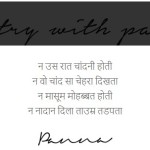 try with pa
न उस रात चांदनी होती
न वो चांद सा चेहरा दिखता
न मासूम मोहब्बत होती
न नादान दिला ताउम्र तडपता
Panna